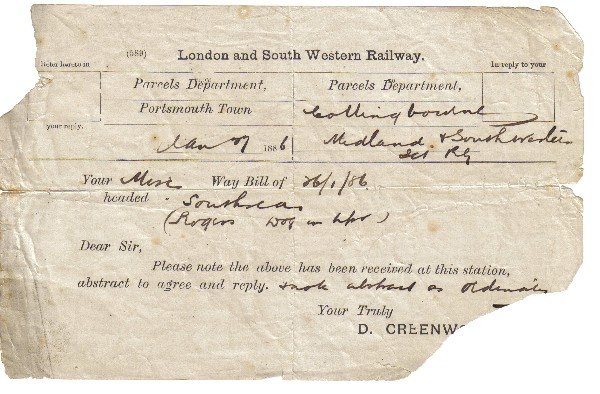 (589) London and South Western Railway.
Refer hereto in
In reply to your
Parcels Department,
Parcels Department,
Portsmouth Town
Collingbourne
your reply.
Jan 1886
Midland & South Western
Jct Ry
Your Way Bill of 26/1/86
headed Southsea
(Rogers Dog in hpr)
Dear Sir,
Please note the above has been received at this station,
abstract to agree and reply. abstract as
Your Truly
D. GREENW